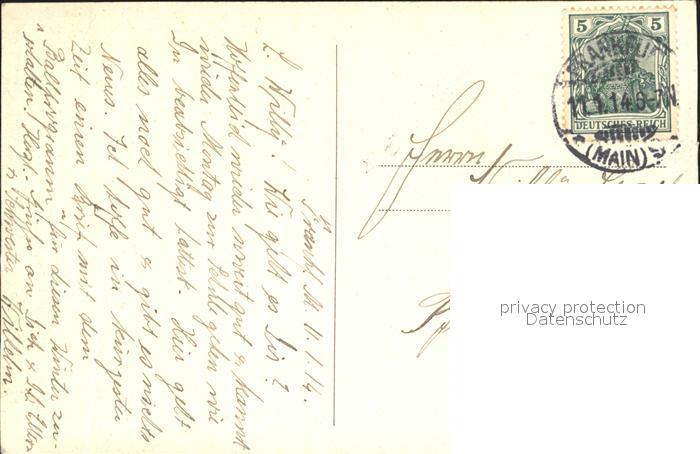 Frankf. M. 11.1.14.
L. Willy! Wie geht es Dir?
Hoffentlich wieder soweit gut & kannst
wieder Montag zur Schule gehen wie
Du beabsichtigt hattest. Hier geht
alles noch gut & gibt es nichts
Neues. Ich hoffe in kürzester
Zeit einen Brief mit dem
Ballprogramm für diesen Winter zu
erhalten. Herzl. Grüße an Dich & Eltern
& Schwester Wilhelm.
5 5
DEUTSCHES REICH
FRANKFURT
11.1.14.6-7N.
(MAIN)
Herrn
privacy protection
Datenschutz